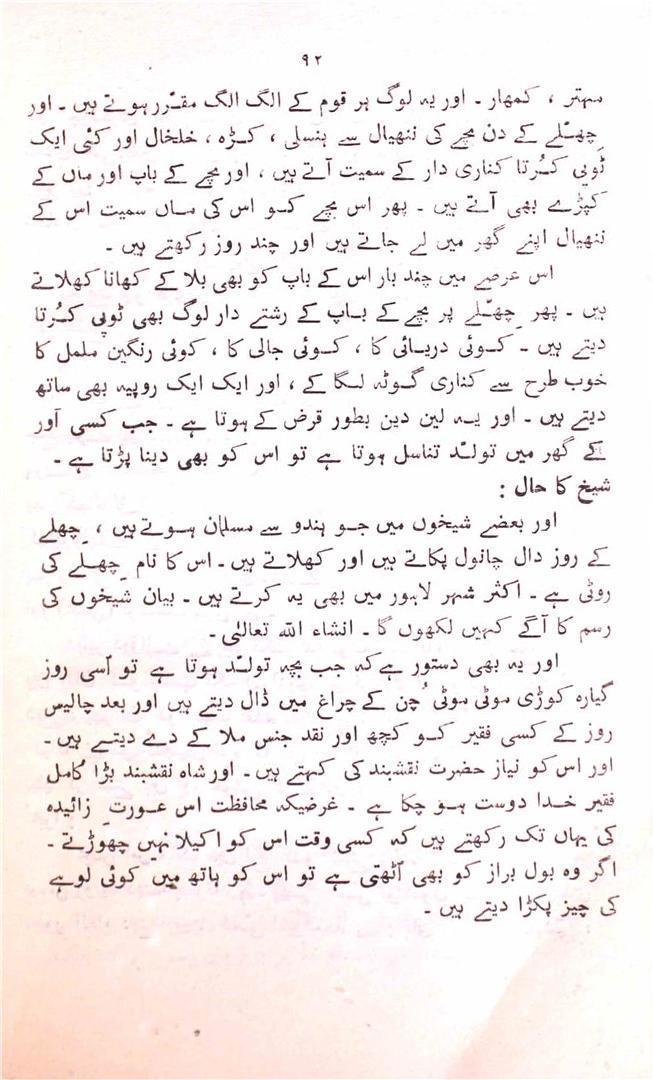 ۹۲
مہتر ، کمھار ۔ اور یہ لوگ ہر قوم کے الگ الگ مقرّر ہوتے ہیں ۔ اور
چھلّے کے دن بچے کی ننھیال سے ہنسلی ، کڑہ ، خلخال اور کئی ایک
ٹوپی کُرتا کناری دار کے سمیت آتے ہیں ، اور بچے کے باپ اور ماں کے
کپڑے بھی آتے ہیں ۔ پھر اس بچے کو اس کی ماں سمیت اس کے
ننھیال اپنے گھر میں لے جاتے ہیں اور چند روز رکھتے ہیں ۔
اس عرصے میں چند بار اس کے باپ کو بھی بلا کے کھانا کھلاتے
ہیں ۔ پھر چھلّے پر بچے کے باپ کے رشتے دار لوگ بھی ٹوپی کُرتا
دیتے ہیں ۔ کوئی دریائی کا ، کوئی جالی کا ، کوئی رنگین ململ کا
خوب طرح سے کناری گوٹہ لگا کے ، اور ایک ایک روپیہ بھی ساتھ
دیتے ہیں ۔ اور یہ لین دین بطور قرض کے ہوتا ہے ۔ جب کسی اَور
کے گھر میں تولّد تناسل ہوتا ہے تو اس کو بھی دینا پڑتا ہے ۔
شیخ کا حال :
اور بعضے شیخوں میں جو ہندو سے مسلمان ہوتے ہیں ، چھلے
کے روز دال چانول پکاتے ہیں اور کھلاتے ہیں ۔ اس کا نام چھلے کی
روٹی ہے ۔ اکثر شہر لاہور میں بھی یہ کرتے ہیں ۔ بیان شیخوں کی
رسم کا آگے کہیں لکھوں گا ۔ انشاء اللہ تعالیٰ ۔
اور یہ بھی دستور ہے کہ جب بچہ تولّد ہوتا ہے تو اُسی روز
گیارہ کوڑی موٹی موٹی چُن کے چراغ میں ڈال دیتے ہیں اور بعد چالیس
روز کے کسی فقیر کو کچھ اور نقد جنس ملا کے دے دیتے ہیں ۔
اور اس کو نیاز حضرت نقشبند کی کہتے ہیں ۔ اور شاہ نقشبند بڑا کامل
فقیر خدا دوست ہو چکا ہے ۔ غرضیکہ محافظت اس عورتِ زائیدہ
کی یہاں تک رکھتے ہیں کہ کسی وقت اس کو اکیلا نہیں چھوڑتے ۔
اگر وہ بول براز کو بھی اُٹھتی ہے تو اس کو ہاتھ میں کوئی لوہے
کی چیز پکڑا دیتے ہیں ۔